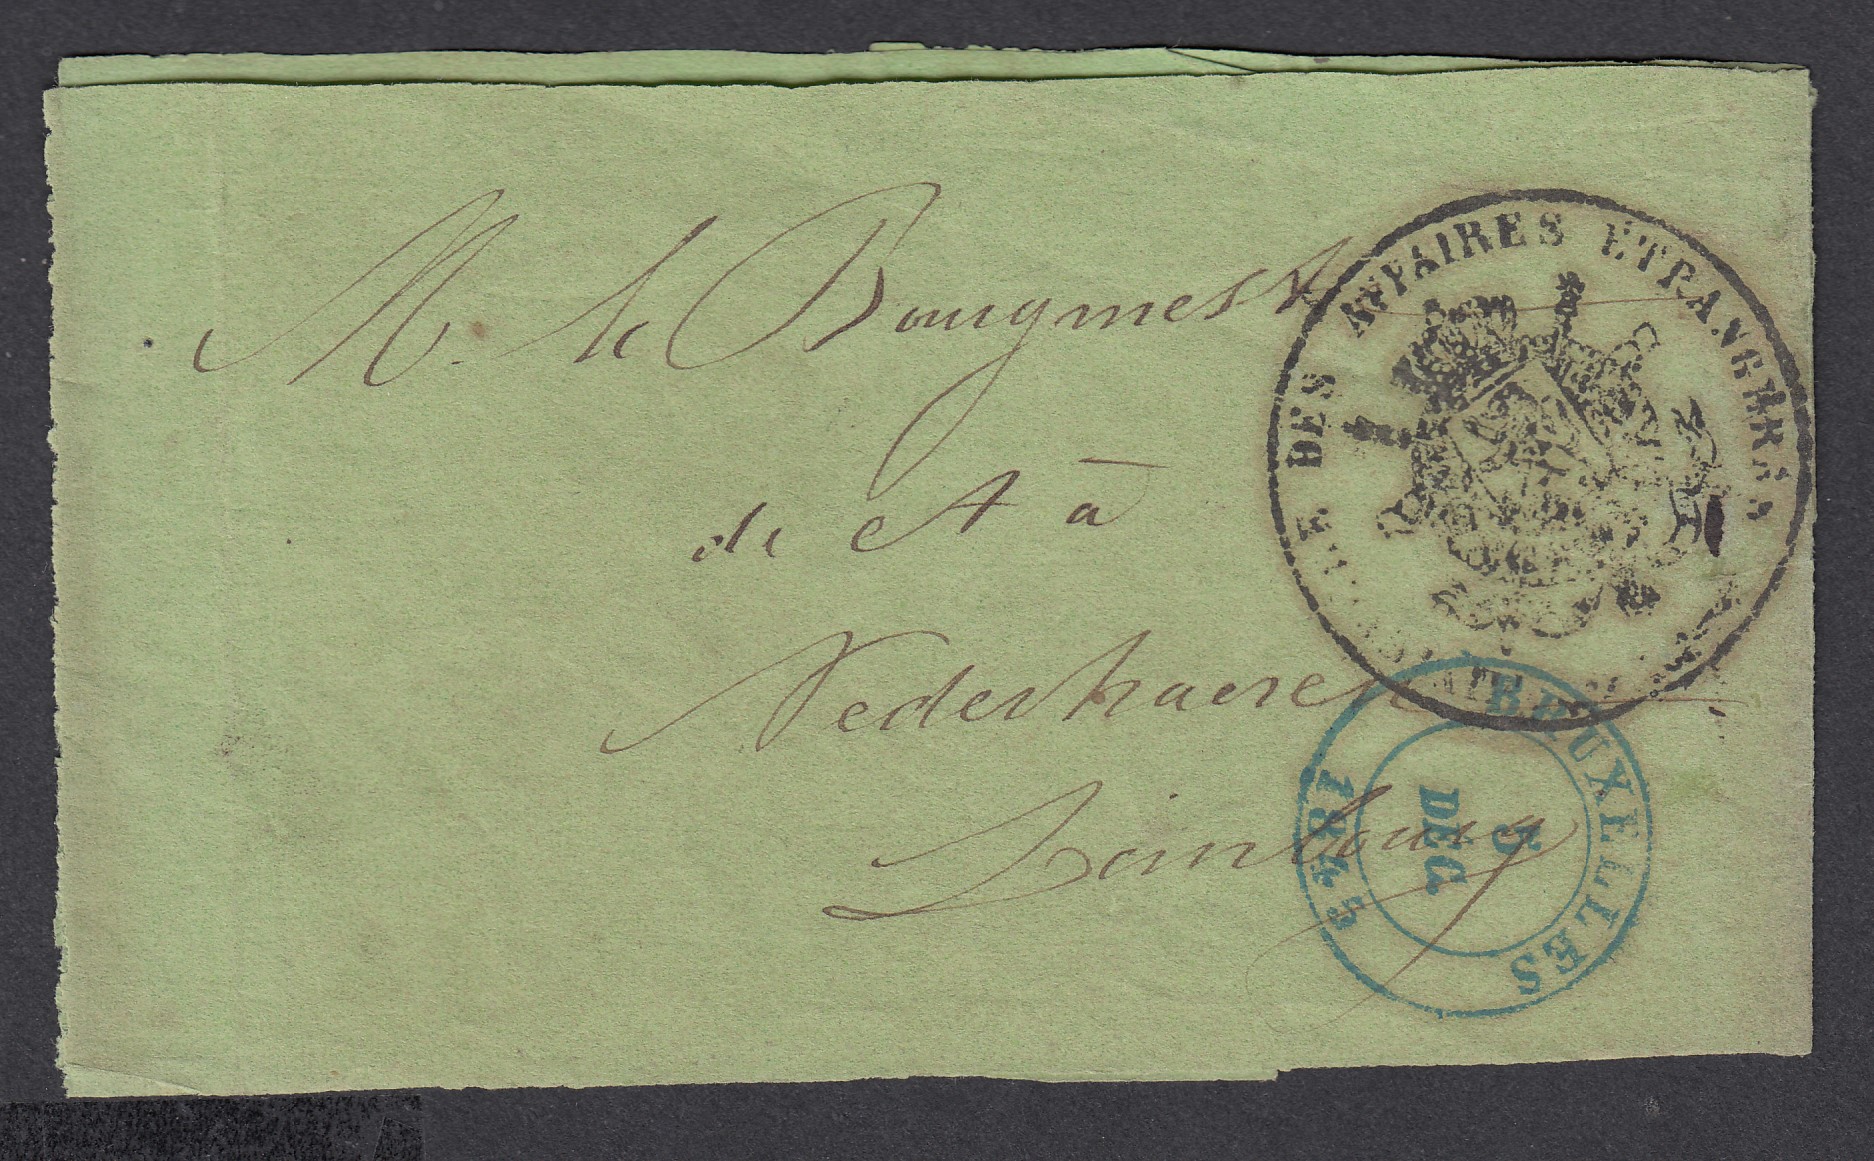 M. le Bourgmestre
de et à
Nederhaeren
Limbourg
DES AFFAIRES ETRANGERES
BRUXELLES
5
DEC.
1845